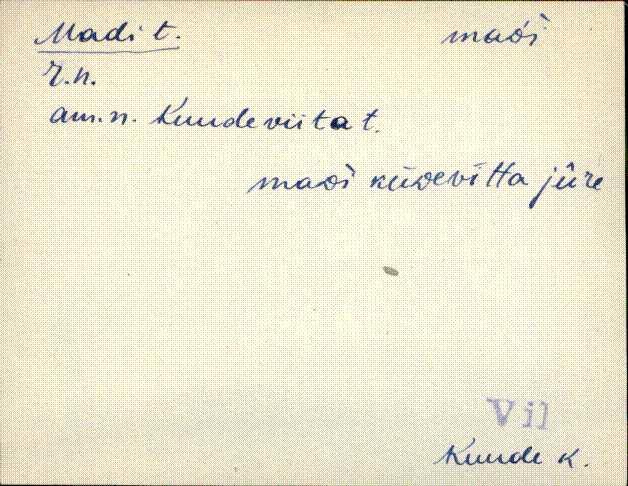 Madi t. maδi
r.n.
am.n. Kuudeviita t.
maδi kūδevītta jūre
Vil
Kuude k.